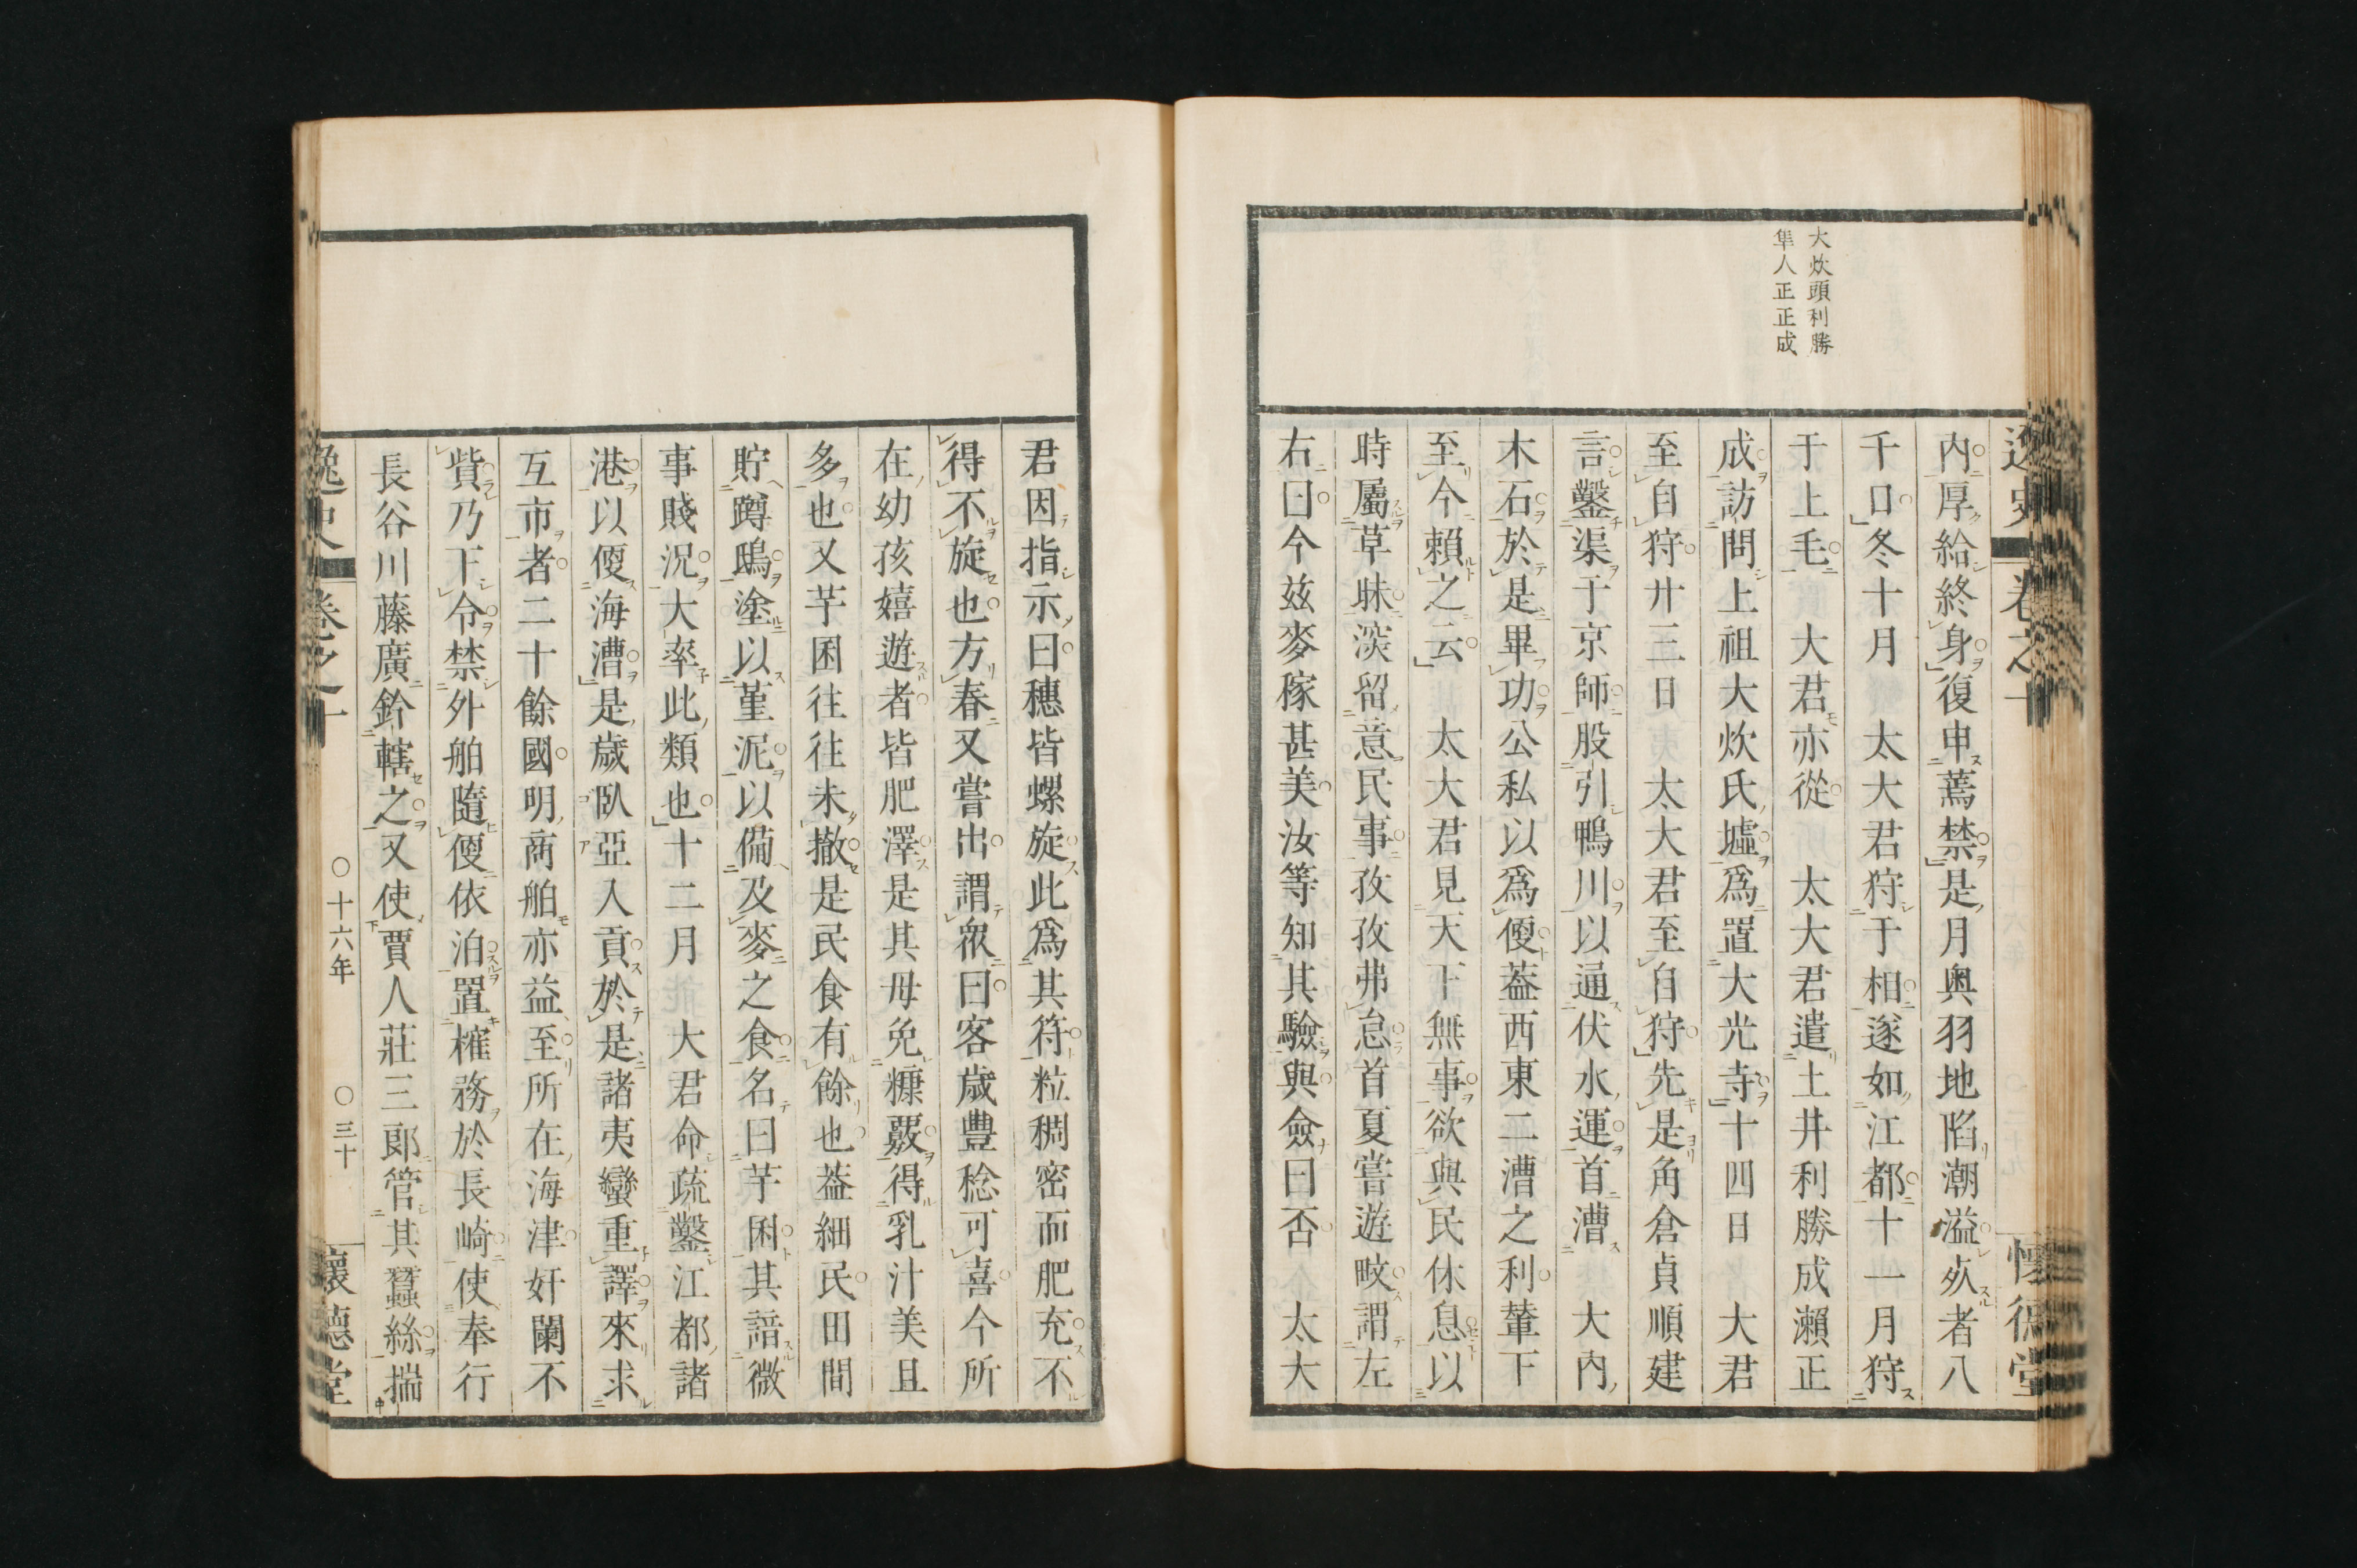 大炊頭利勝
隼人正正成
逸史 卷之十 懷德堂
內厚給終身復申蔫禁是月奥羽地陷潮溢死者八
千口冬十月 太大君狩于相遂如江都十一月狩
于上毛 大君亦從 太大君遣土井利勝成瀨正
成訪問上祖大炊氏墟爲置大光寺十四日 大君
至自狩廿三日 太大君至自狩先是角倉貞順建
言鑿渠于京師股引鴨川以通伏水運首漕 大內
木石於是畢功公私以爲便蓋西東二漕之利輦下
至今賴之云 太大君見天下無事欲與民休息以
時屬草昧深留意民事孜孜弗怠首夏嘗遊畋謂左
右曰今玆麥稼甚美汝等知其驗與僉曰否 太大
君因指示曰穗皆螺旋此爲其符粒稠密而肥充不
得不旋也方春又嘗出謂衆曰客歲豐稔可喜今所
在幼孩嬉遊者皆肥澤是其母免糠覈得乳汁美且
多也又芋囷往往未撤是民食有餘也蓋細民田間
貯蹲鴟塗以堇泥以備及麥之食名曰芋囷其諳微
事賤況大率此類也十二月 大君命疏鑿江都諸
港以便海漕是歲臥亞入貢於是諸夷蠻重譯來求
互市者二十餘國明商舶亦益至所在海津奸闌不
貲乃下令禁外舶隨便依泊置榷務於長崎使奉行
長谷川藤廣鈐轄之又使賈人莊三郎管其蠶絲揣
逸史 卷之十 〇十六年 〇三十 懷德堂